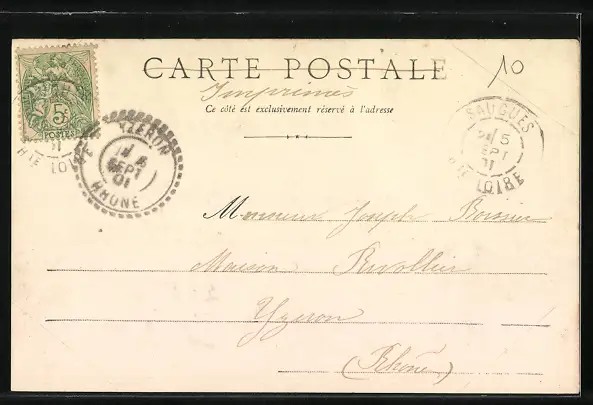 10
CARTE POSTALE
Imprimés
Ce côté est exclusivement réservé à l'adresse
5c
POSTES
Hte LOIRE
YZERON
5
SEPT
01
RHONE
SAUGUES
5
SEPT
01
Hte LOIRE
Monsieur Joseph
Maison Rivollier
Yzeron
(Rhône)